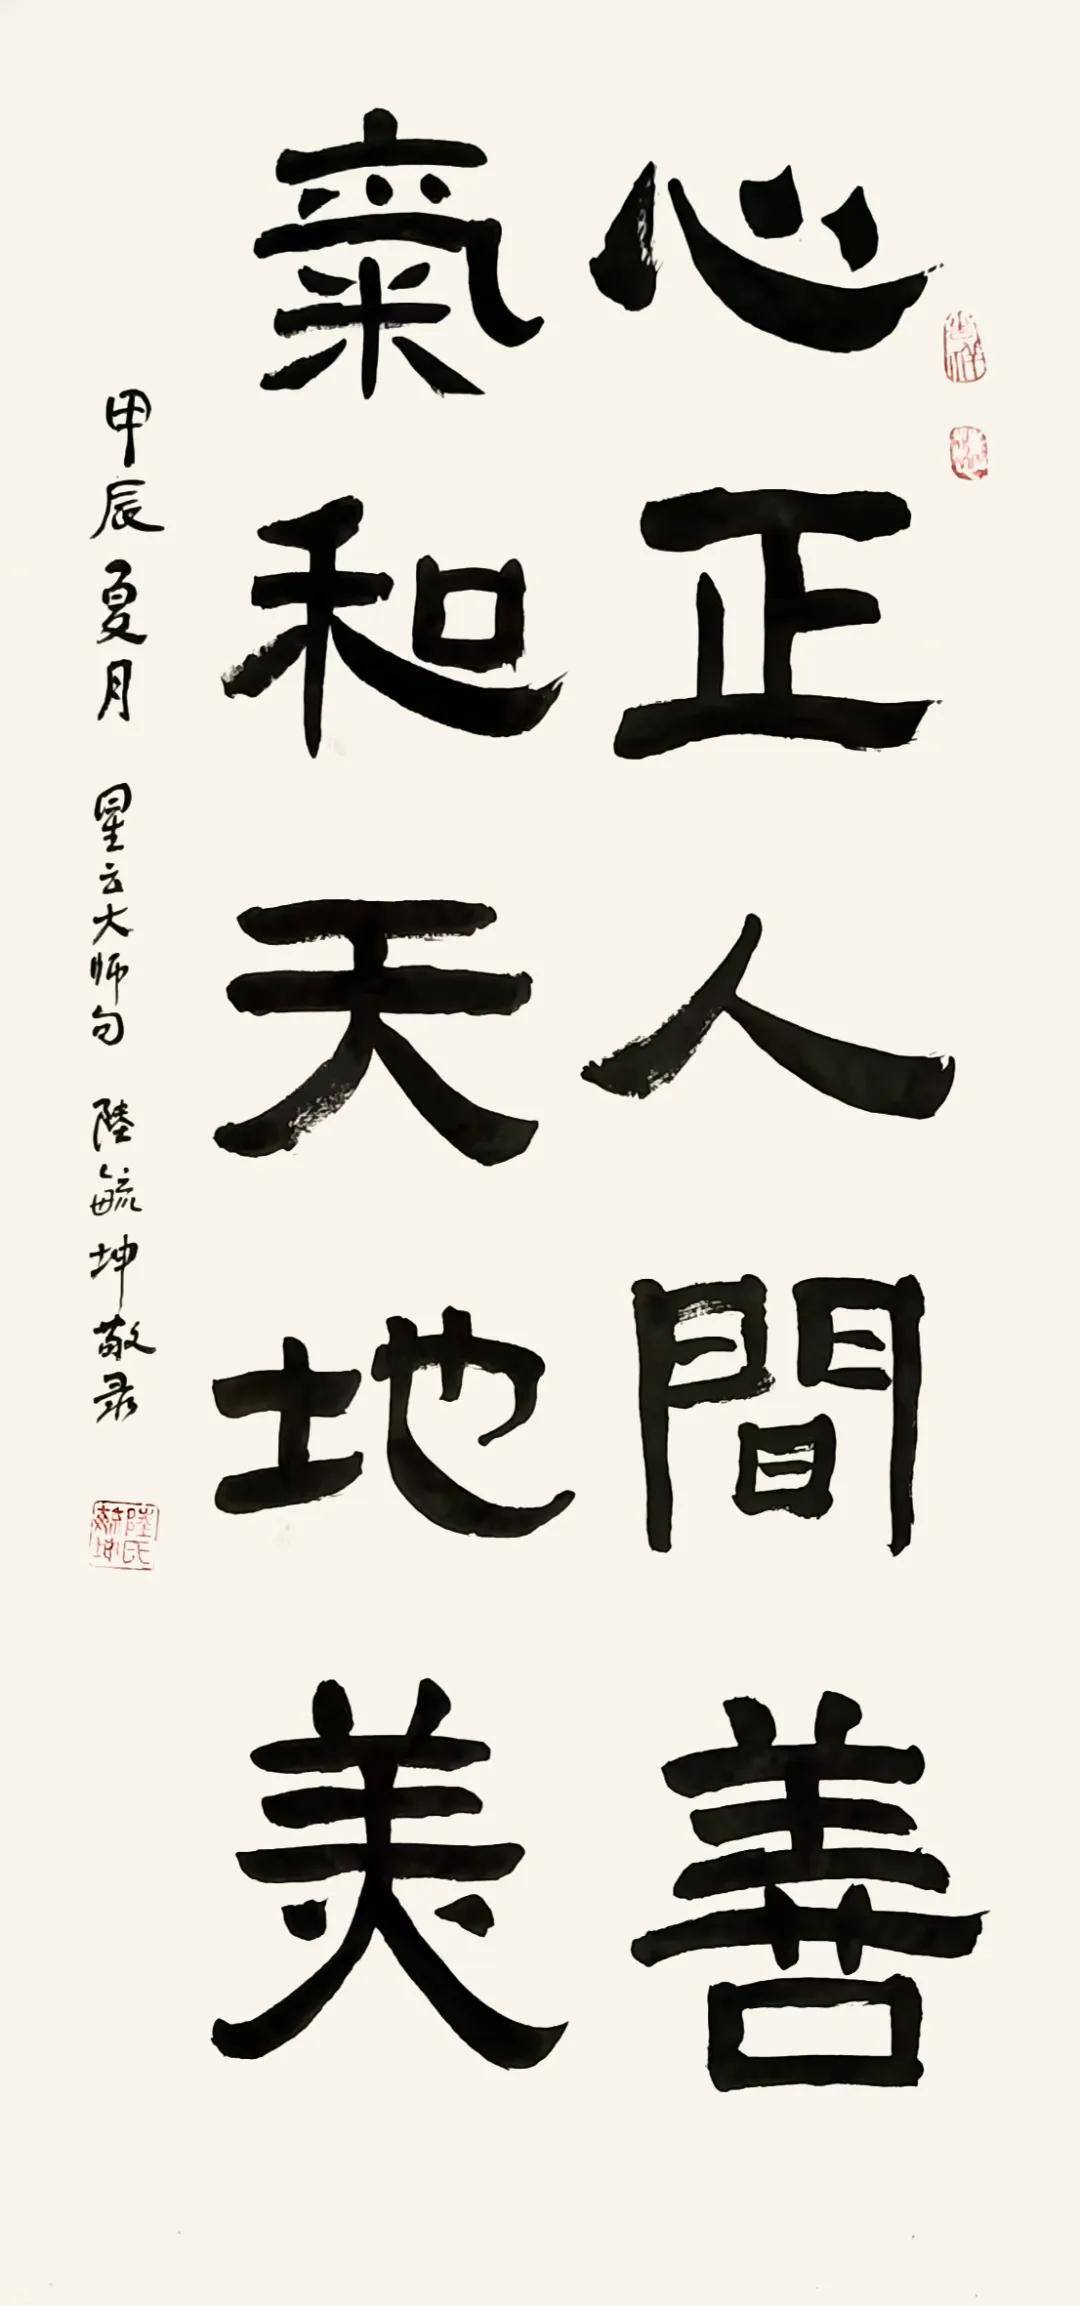 心正人間善
氣和天地美
甲辰夏月 星云大师句 陸毓坤敬录
陸氏毓坤